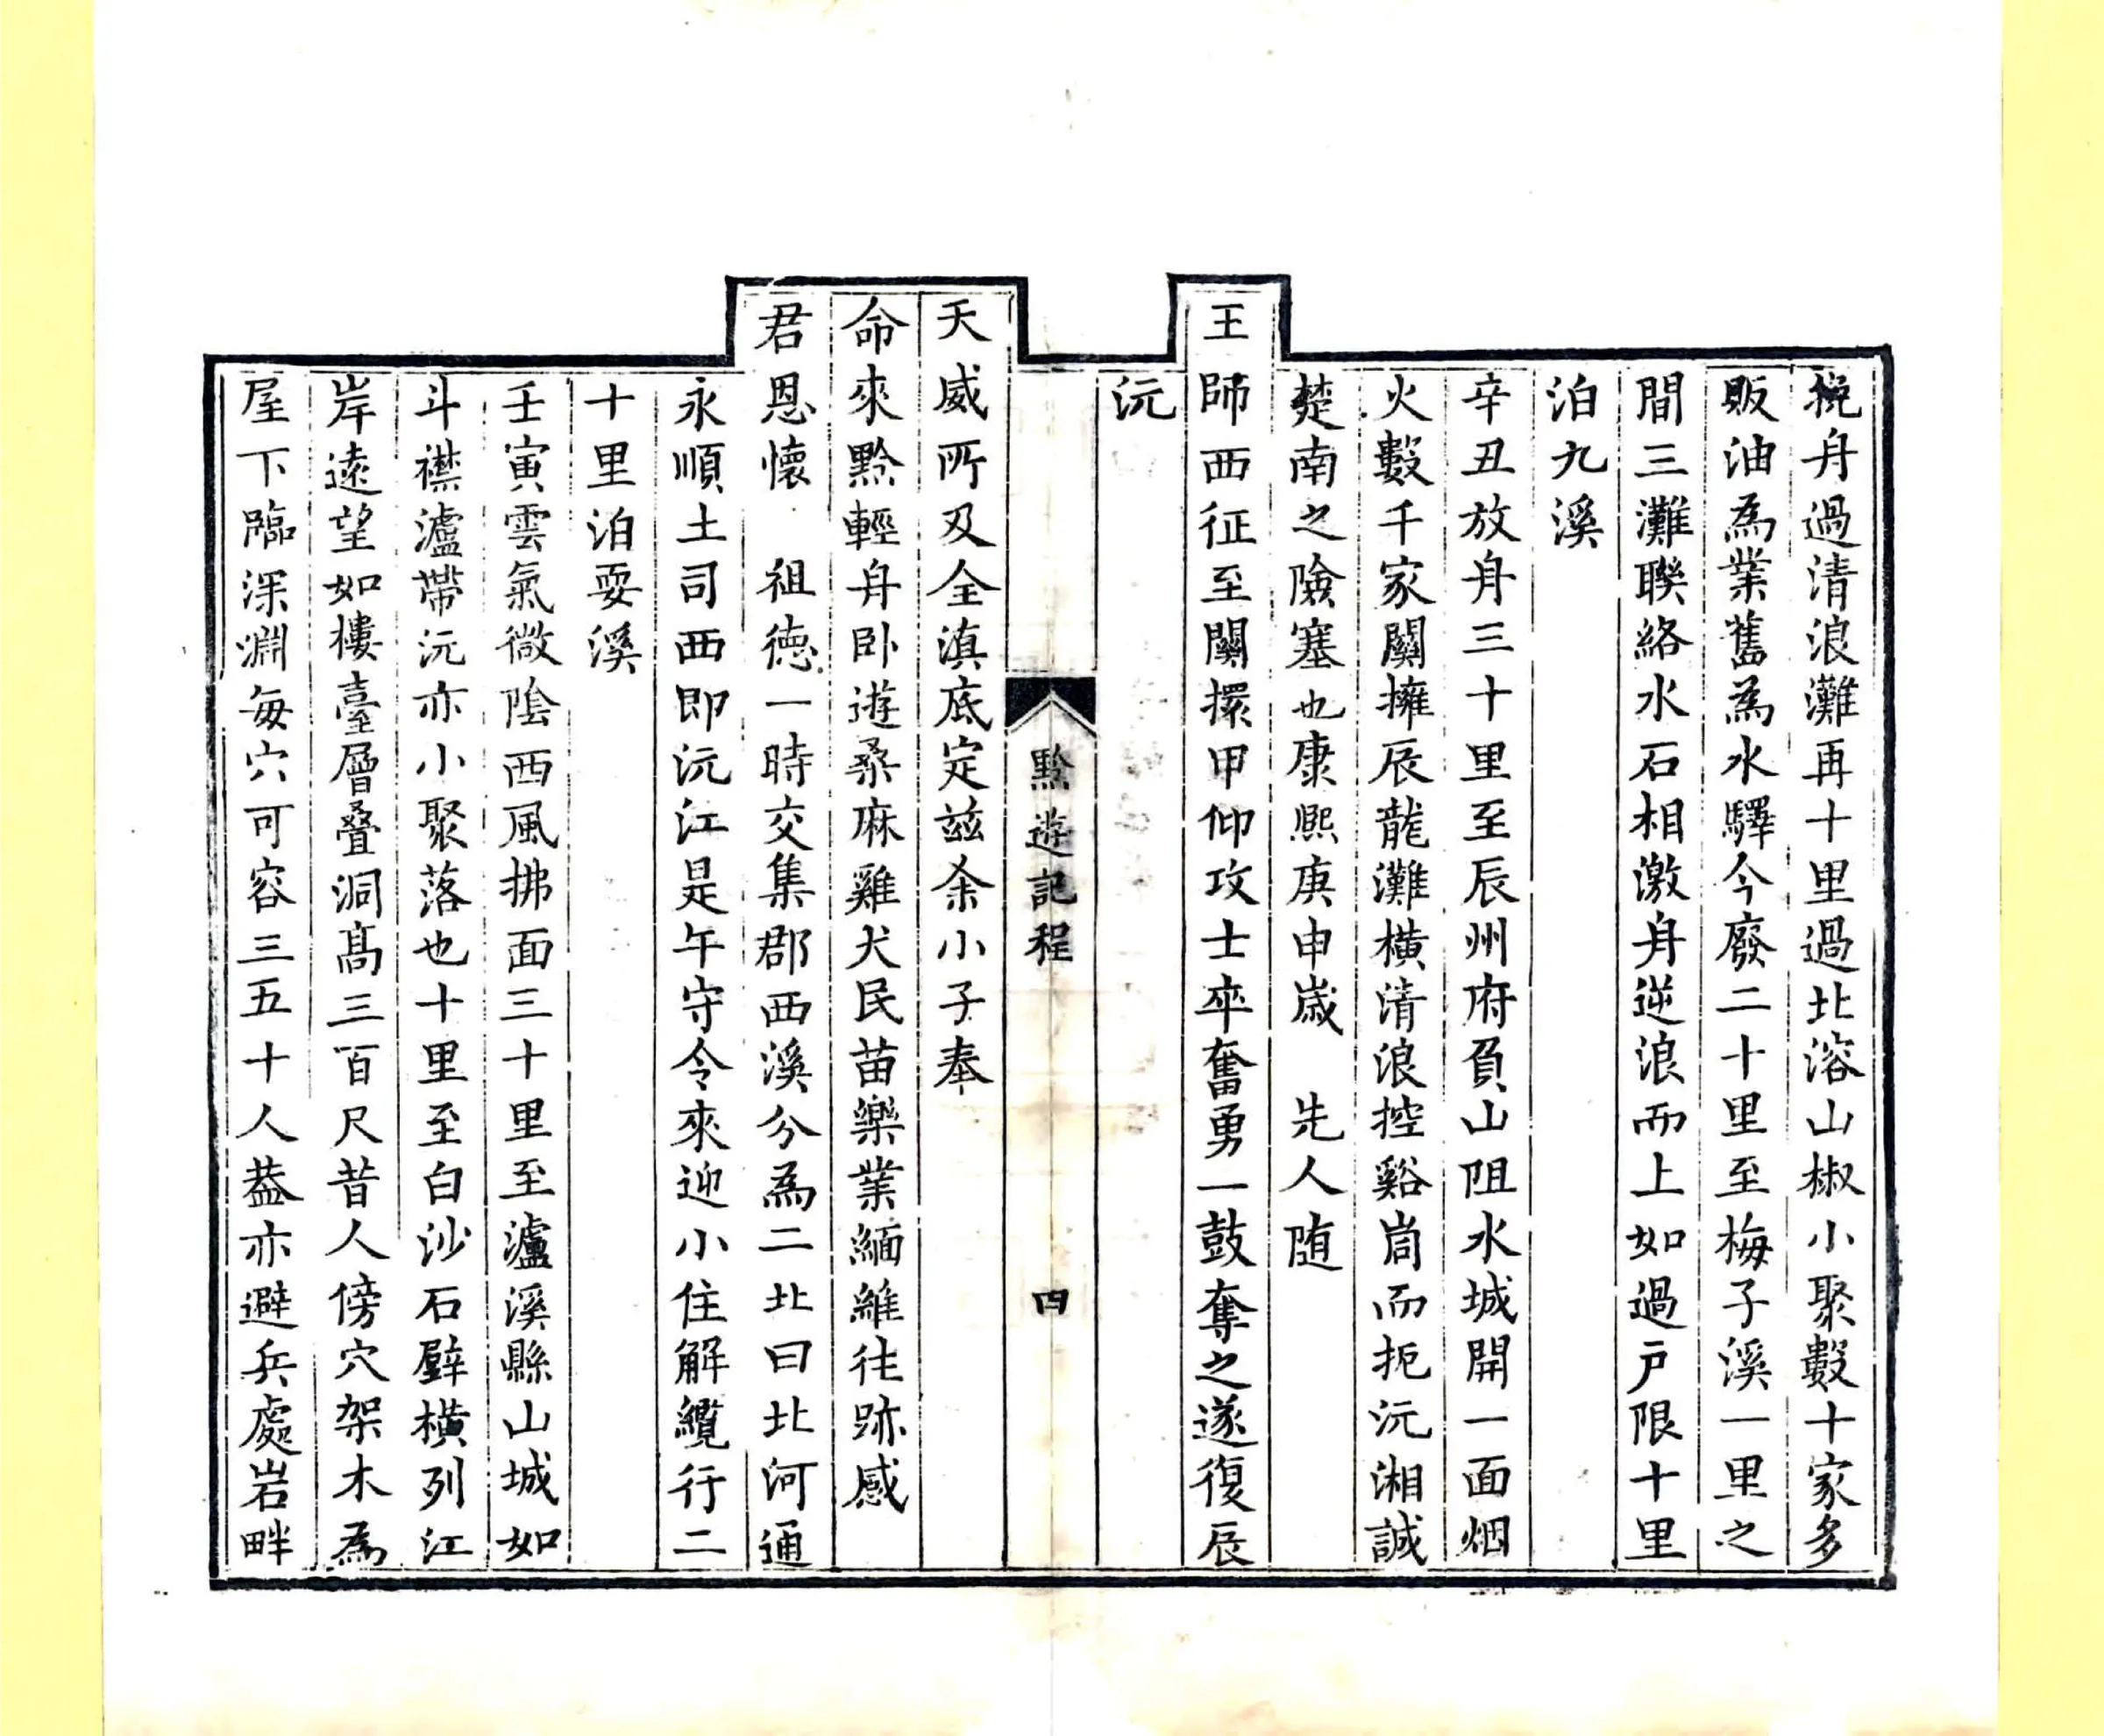 挽舟過清浪灘再十里過北溶山椒小聚數十家多
販油為業舊為水驛今廢二十里至梅子溪一里之
間三灘聯絡水石相激舟逆浪而上如過戶限十里
泊九溪
辛丑放舟三十里至辰州府負山阻水城開一面烟
火數千家關擁辰龍灘橫清浪控谿峝而扼沅湘誠
楚南之險塞也康熙庚申歲　先人随
王師西征至關擐甲仰攻士卒奮勇一鼓奪之遂復辰
沅
黔遊記程
四
天威所及全滇底定茲余小子奉
命來黔輕舟卧遊桑麻雞犬民苗樂業緬維往跡感
君恩懷　祖德一時交集郡西溪分為二北曰北河通
永順土司西即沅江是午守令來迎小住解纜行二
十里泊耍溪
壬寅雲氣微陰西風拂面三十里至瀘溪縣山城如
斗襟瀘帶沅亦小聚落也十里至白沙石壁橫列江
岸遠望如樓臺層叠洞髙三百尺昔人傍穴架木為
屋下臨深淵每穴可容三五十人葢亦避兵處岩畔